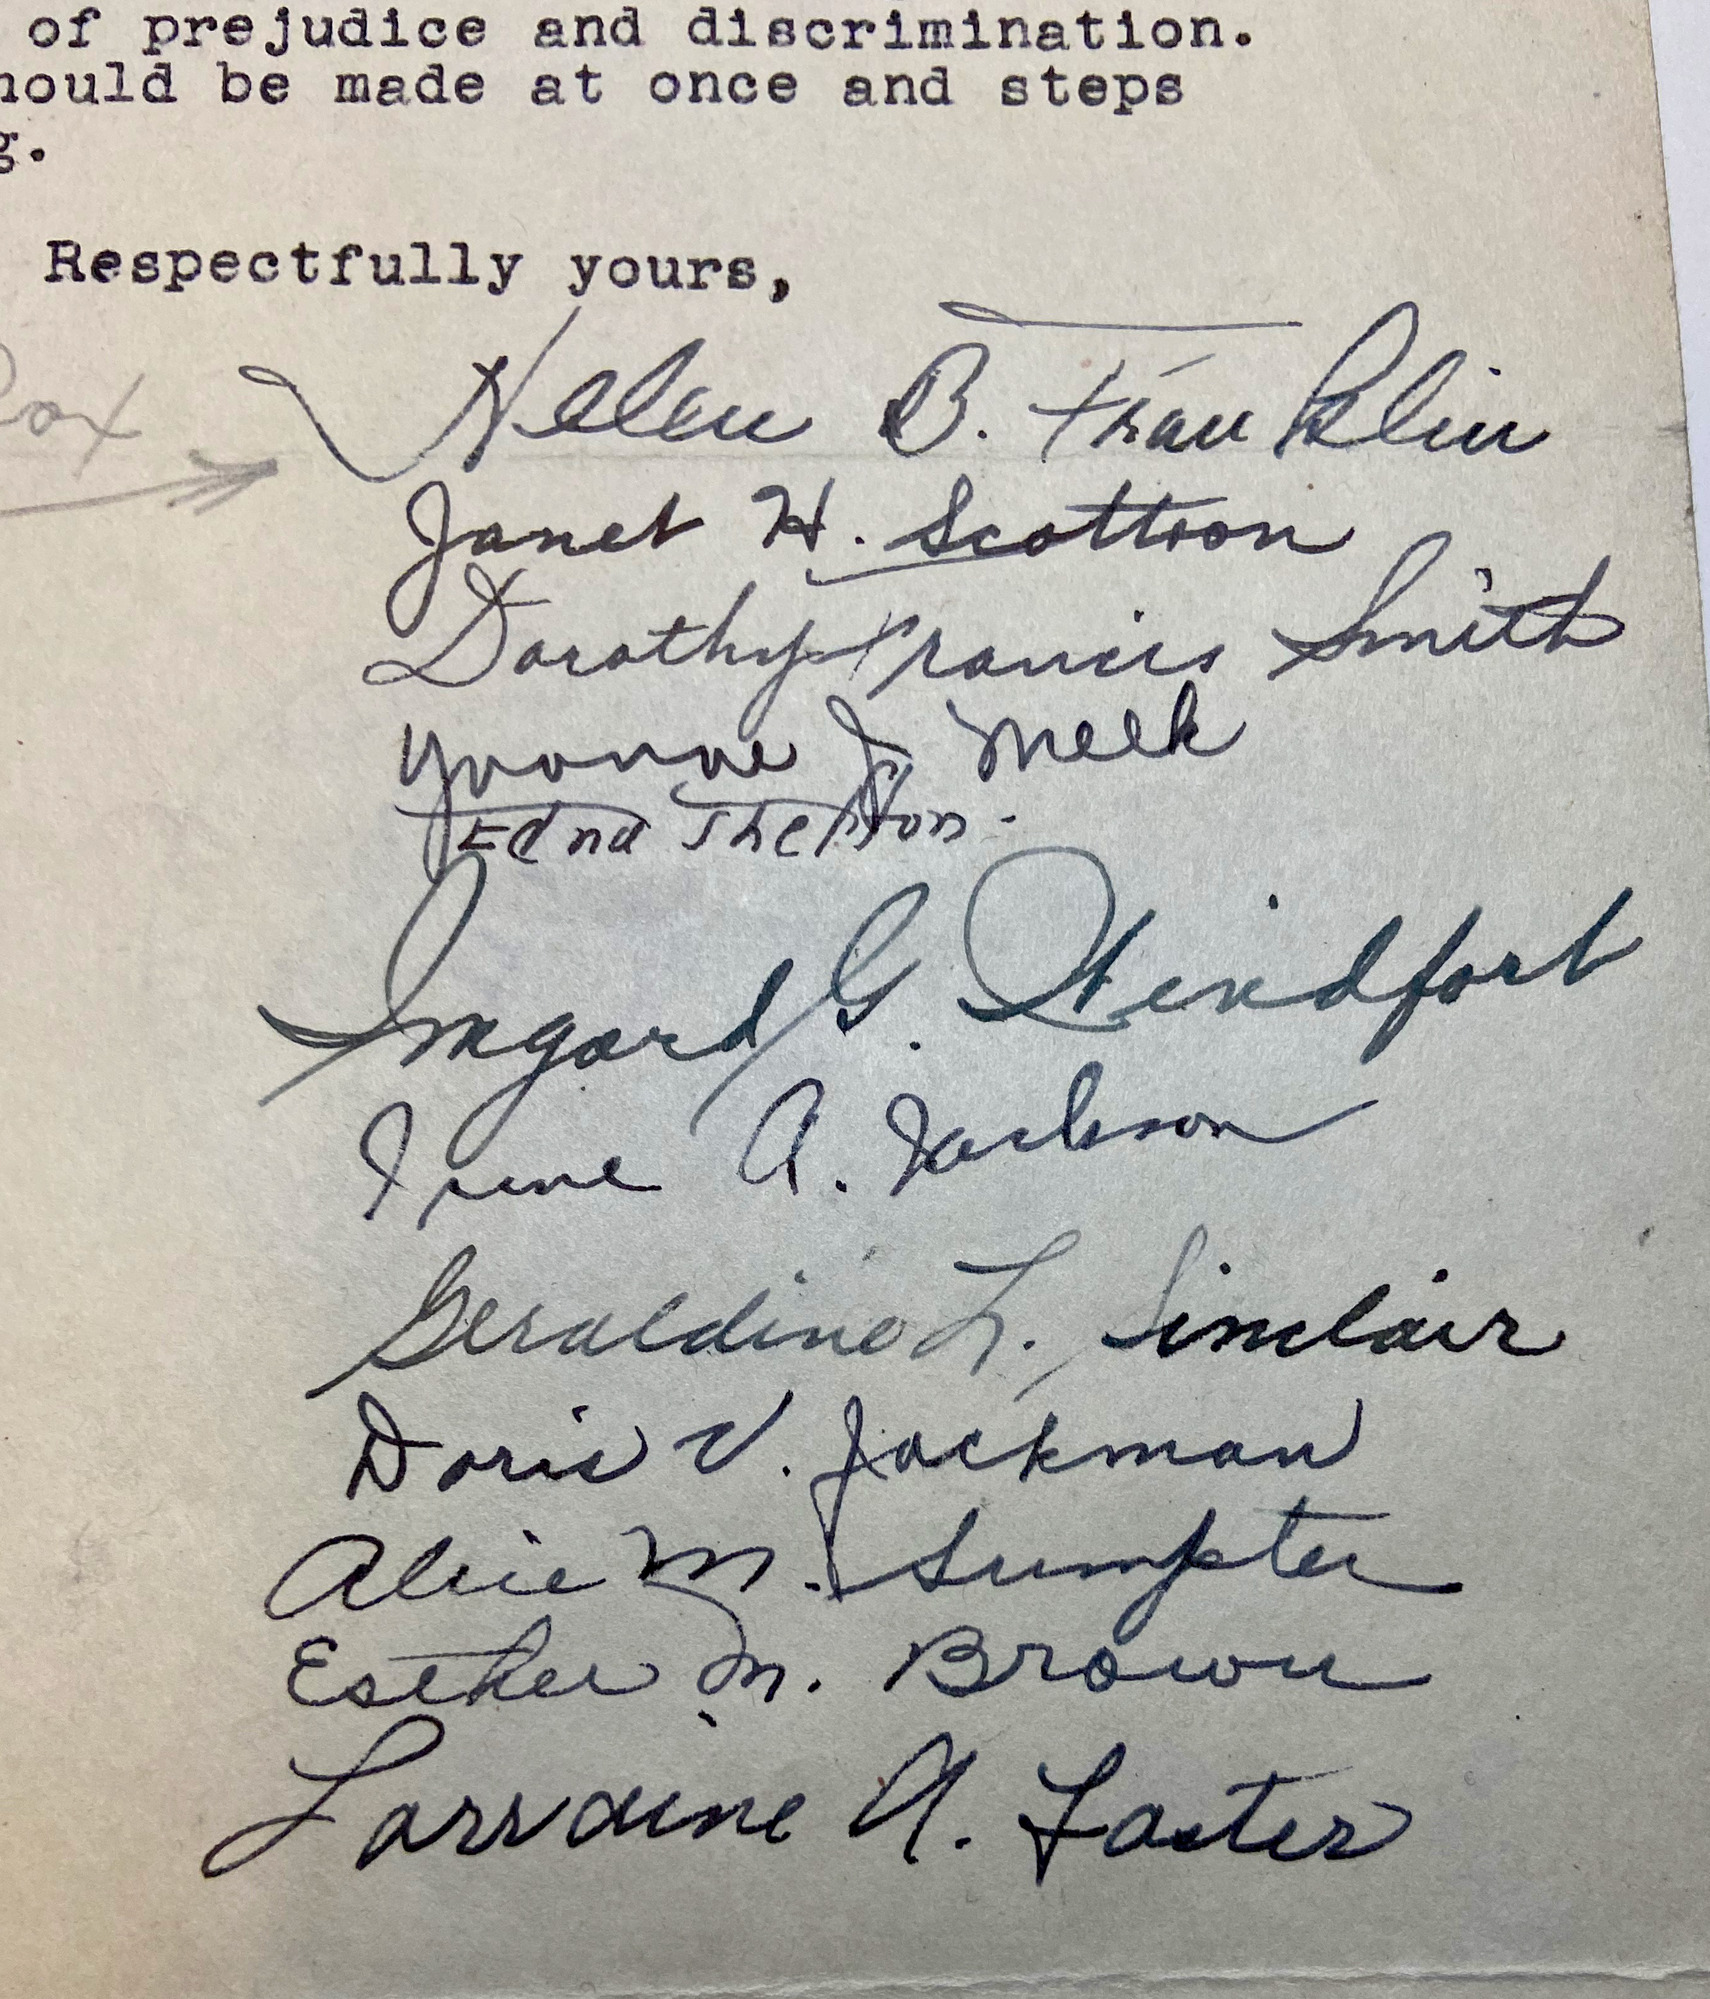 of prejudice and discrimination.
hould be made at once and steps
g.
Respectfully yours,
Helen B. Franklin
Janet H. Scottron
Dorothy Francis Smith
Yvonne J. Meek
Edna
Imgard G.
Irene A. Jackson
Geraldine L. Sinclair
Doris V. Jackman
Alice M. Sumpter
Esther M. Brown
Lorraine A. Foster